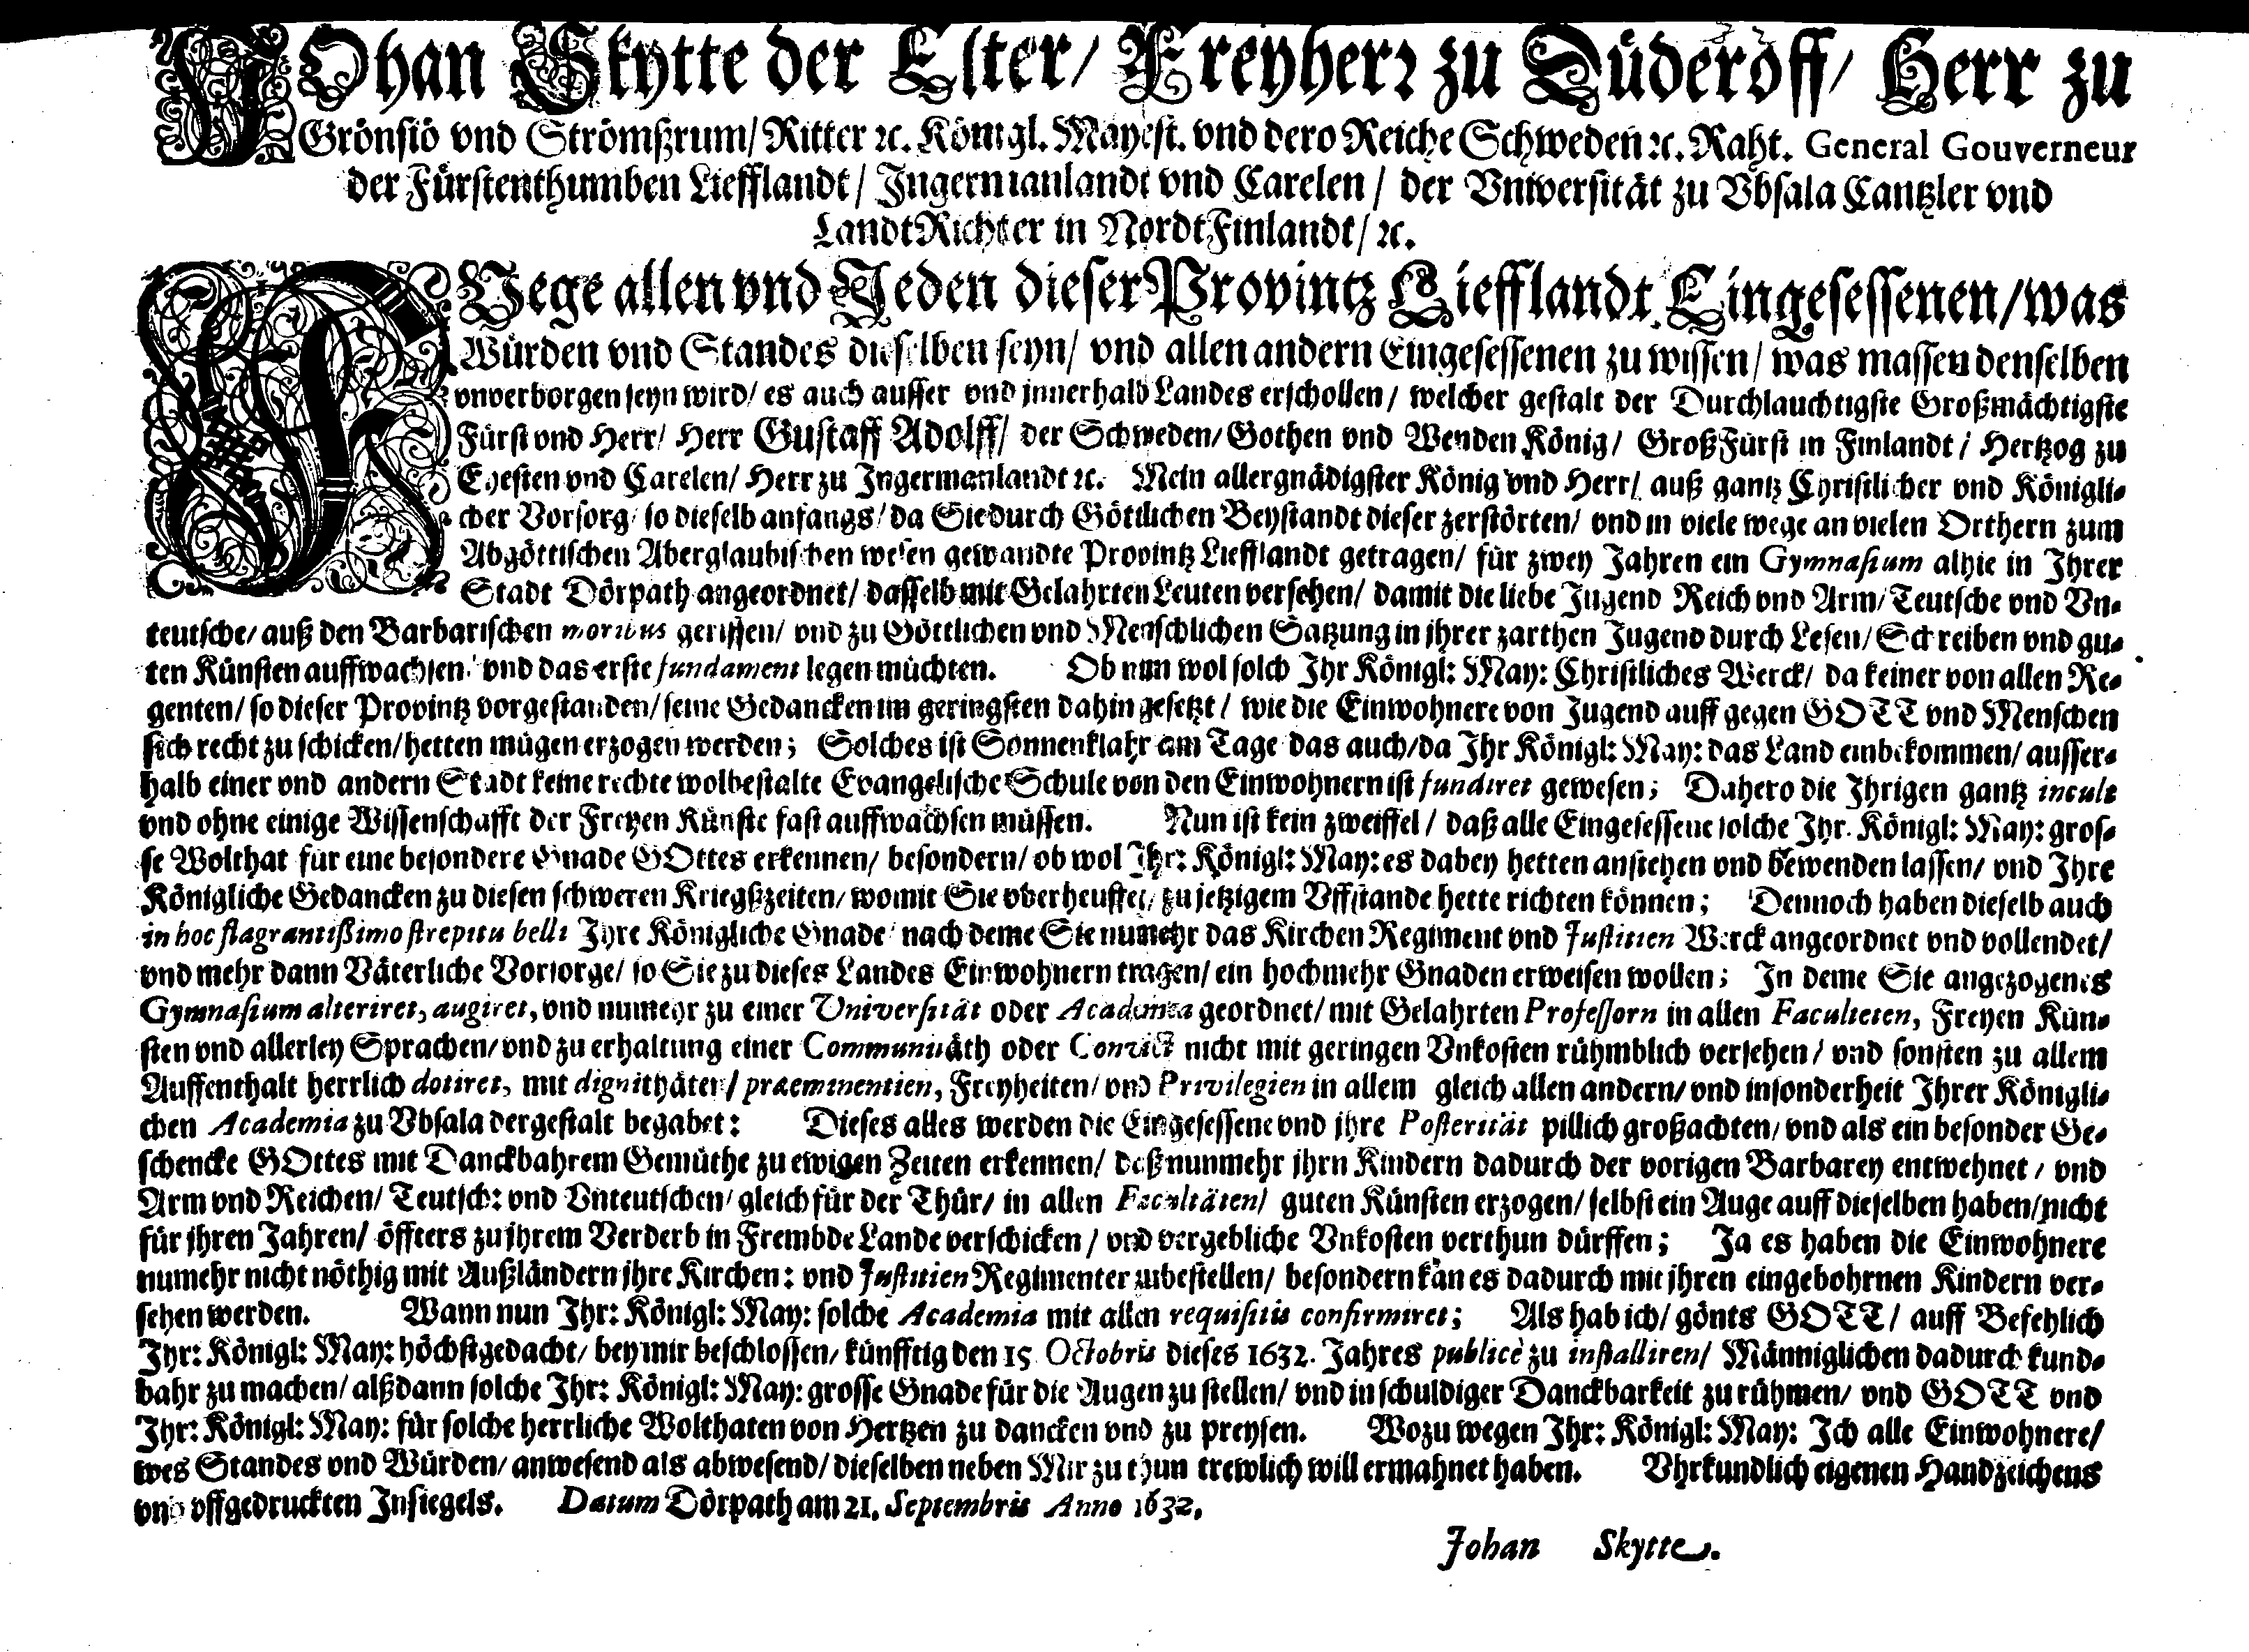 JOhan Skytte der Elter/ Freyherr zu Düderoff/ Herr zu
Grönsiö vnd Strömßrum/ Ritter ꝛc. Königl. Mayest. vnd dero Reiche Schweden ꝛc. Raht. General Gouverneur
der Fürstenthumben Liefflandt/ Ingermanlandt vnd Carelen/ der Vniversität zu Vbsala Cantzler vnd
LandtRichter in NordtFinlandt/ ꝛc.
FVege allen vnd Jeden dieser Provintz Liefflandt Eingesessenen/ was
Würden vnd Standes dieselben seyn/ vnd allen andern Eingesessenen zu wissen/ was massen denselben
vnverborgen seyn wird/ es auch ausser vnd innerhalb Landes erschollen/ welcher gestalt der Durchlauchtigste Großmächtigste
Fürst vnd Herr/ Herr Gustaff Adolff/ der Schweden/ Gothen vnd Wenden König/ GroßFürst in Finlandt/ Hertzog zu
Ehesten vnd Carelen/ Herr zu Ingermanlandt ꝛc. Mein allergnädigster König vnd Herr/ auß gantz Christlicher vnd Königli-
cher Vorsorg/ so dieselb anfangs/ da Sie durch Göttlichen Beystandt dieser zerstörten/ vnd in viele wege an vielen Orthern zum
Abgöttischen Aberglaubischen wesen gewandte Provintz Liefflandt getragen/ für zwey Jahren ein Gymnasium alhie in Ihrer
Stadt Dörpath angeordnet/ dasselb mit Gelahrten Leuten versehen/ damit die liebe Jugend Reich vnd Arm/ Teutsche vnd Vn-
teutsche/ auß den Barbarischen moribus gerissen/ vnd zu Göttlichen vnd Menschlichen Satzung in jhrer zarthen Jugend durch Lesen/ Schreiben vnd gu-
ten Künsten auffwachsen/ vnd das erste fundament legen müchten. Ob nun wol solch Ihr Königl: May: Christliches Werck/ da keiner von allen Re-
genten/ so dieser Provintz vorgestanden/ seine Gedancken im geringsten dahin gesetzt/ wie die Einwohnere von Jugend auff gegen GOTT vnd Menschen
sich recht zu schicken/ hetten mügen erzogen werden; Solches ist Sonnenklahr am Tage das auch/ da Ihr Königl: May: das Land einbekommen/ ausser-
halb einer vnd andern Stadt keine rechte wolbestalte Evangelische Schule von den Einwohnern ist fundiret gewesen; Dahero die Ihrigen gantz incult
vnd ohne einige Wissenschafft der Freyen Künste fast auffwachsen müssen. Nun ist kein zweiffel/ daß alle Eingesessene solche Ihr. Königl: May: gros-
se Wolthat für eine besondere Gnade GOttes erkennen/ besondern/ ob wol Ihr: Königl: May: es dabey hetten anstehen vnd bewenden lassen/ vnd Ihre
Königliche Gedancken zu diesen schweren Kriegßzeiten/ womit Sie vberheuffet/ zu jetzigem Vffstande hette richten können; Dennoch haben dieselb auch
in hoc flagrantißimo strepitu belli Ihre Königliche Gnade nach deme Sie numehr das Kirchen Regiment vnd Justitien Werck angeordnet vnd vollendet/
vnd mehr dann Väterliche Vorsorge/ so Sie zu dieses Landes Einwohnern tragen/ ein hochmehr Gnaden erweisen wollen; In deme Sie angezogenes
Gymnasium alteriret, augiret, vnd numehr zu einer Universität oder Academia geordnet/ mit Gelahrten Professorn in allen Faculteten, Freyen Kün-
sten vnd allerley Sprachen/ vnd zu erhaltung einer Communitäth oder Convict nicht mit geringen Vnkosten rühmblich versehen/ vnd sonsten zu allem
Auffenthalt herrlich dotiret, mit dignithäten/ praeminentien, Freyheiten/ vnd Privilegien in allem gleich allen andern/ vnd insonderheit Ihrer Königli-
chen Academia zu Vbsala dergestalt begabet: Dieses alles werden die Eingesessene vnd ihre Posterität pillich großachten/ vnd als ein besonder Ge-
schencke GOttes mit Danckbahrem Gemüthe zu ewigen Zeiten erkennen/ daß nunmehr jhrn Kindern dadurch der vorigen Barbarey entwehnet/ vnd
Arm vnd Reichen/ Teutsch: vnd Vnteutschen/ gleich für der Thür/ in allen Facultäten/ guten Künsten erzogen/ selbst ein Auge auff dieselben haben/ nicht
für jhren Jahren/ öffters zu jhrem Verderb in Frembde Lande verschicken/ vnd vergebliche Vnkosten verthun dürffen; Ja es haben die Einwohnere
numehr nicht nöthig mit Außländern jhre Kirchen: vnd Justitien Regimenter zubestellen/ besondern kan es dadurch mit jhren eingebohrnen Kindern ver-
sehen werden. Wann nun Ihr: Königl: May: solche Academia mit allen requisitis confirmiret; Als hab ich/ gönts GOTT/ auff Befehlich
Ihr: Königl: May: höchstgedacht/ bey mir beschlossen/ künfftig den 15 Octobris dieses 1632. Jahres publicè zu installiren/ Männiglichen dadurch kund-
bahr zu machen/ alßdann solche Ihr: Königl: May: grosse Gnade für die Augen zu stellen/ vnd in schuldiger Danckbarkeit zu rühmen/ vnd GOTT vnd
Ihr: Königl: May: für solche herrliche Wolthaten von Hertzen zu dancken vnd zu preysen. Wozu wegen Ihr: Königl: May: Ich alle Einwohnere/
wes Standes vnd Würden/ anwesend als abwesend/ dieselben neben Mir zu thun trewlich will ermahnet haben. Vhrkundlich eigenen Handzeichens
vnd vffgedruckten Insiegels. Datum Dörpath am 21. Septembris Anno 1632.
Johan Skytte.